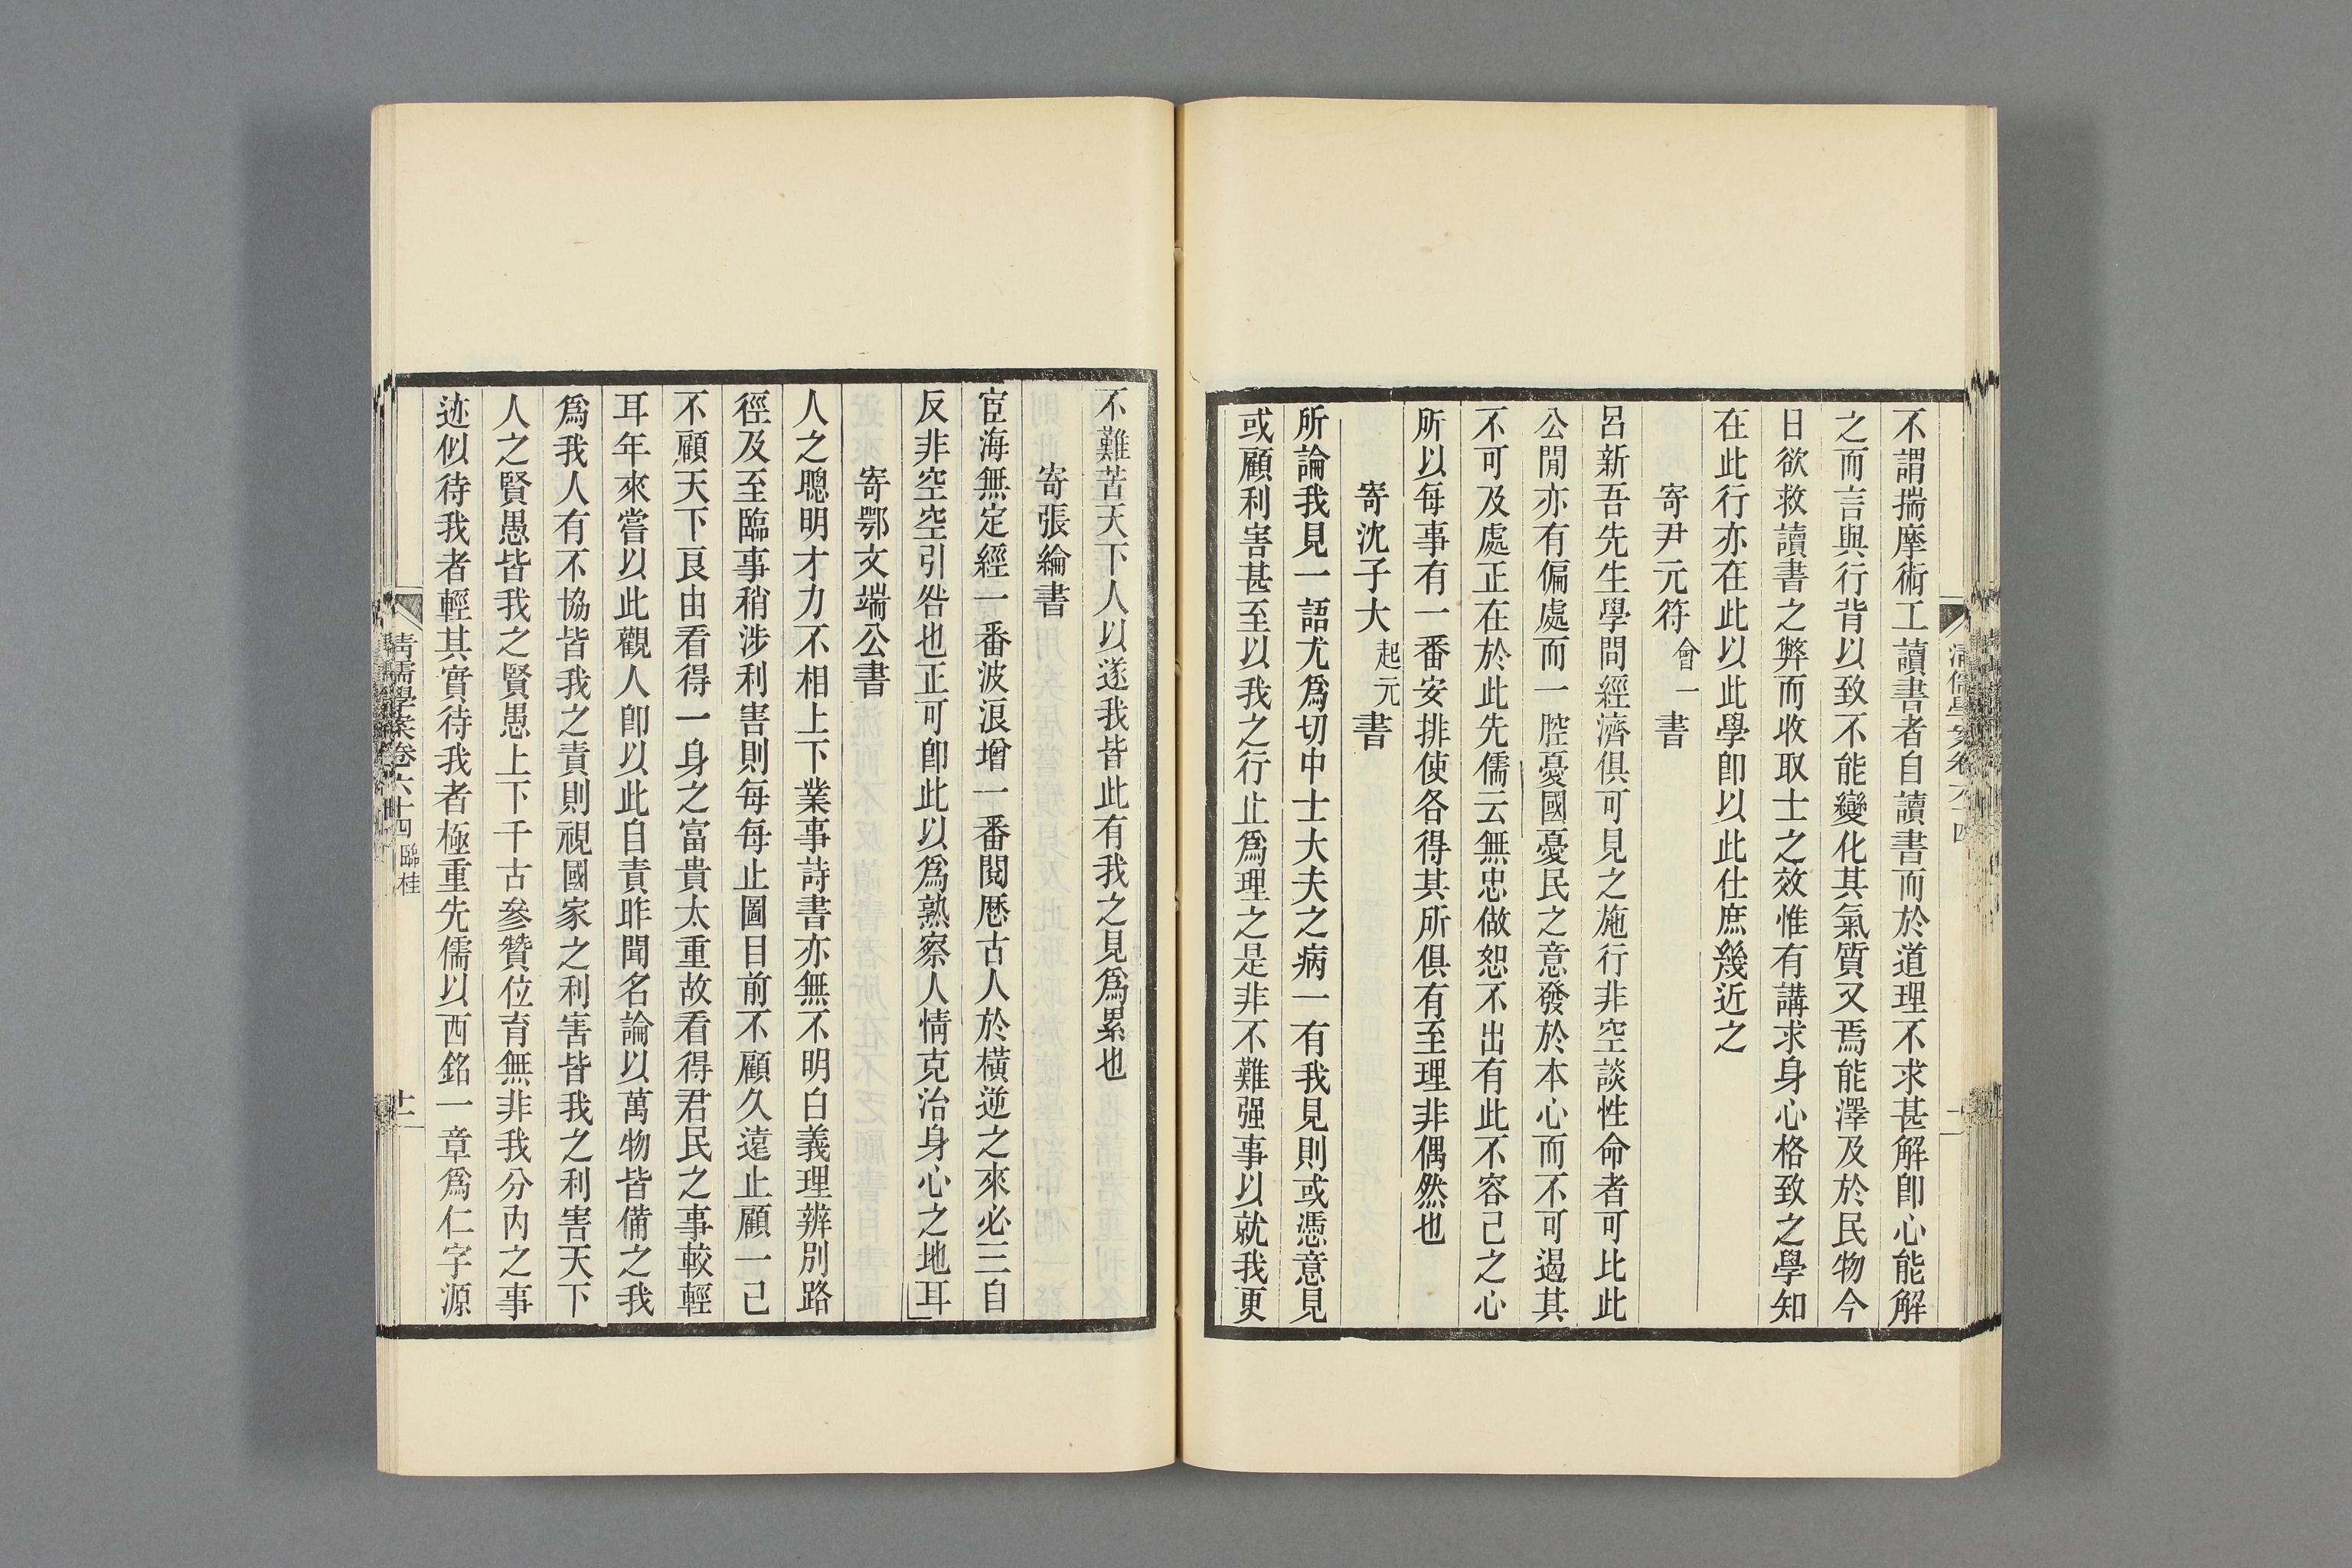 不謂揣摩術工讀書者自讀書而於道理不求甚解卽心能解
之而言與行背以致不能變化其氣質又焉能澤及於民物今
日欲救讀書之弊而收取士之效惟有講求身心格致之學知
在此行亦在此以此學卽以此仕庶幾近之
寄尹元符會一書
呂新吾先生學問經濟俱可見之施行非空談性命者可比此
公閒亦有偏處而一腔憂國憂民之意發於本心而不可遏其
不可及處正在於此先儒云無忠做恕不出有此不容己之心
所以每事有一番安排使各得其所俱有至理非偶然也
寄沈子大起元書
所論我見一語尤爲切中士大夫之病一有我見則或憑意見
或顧利害甚至以我之行止爲理之是非不難强事以就我更
不難苦天下人以遂我皆此有我之見爲累也
寄張綸書
宦海無定經一番波浪增一番閱厯古人於橫逆之來必三自
反非空空引咎也正可卽此以爲熟察人情克治身心之地耳
寄鄂文端公書
人之聰明才力不相上下業事詩書亦無不明白義理辨別路
徑及至臨事稍涉利害則每每止圖目前不顧久遠止顧一己
不顧天下良由看得一身之富貴太重故看得君民之事較輕
耳年來嘗以此觀人卽以此自責昨聞名論以萬物皆備之我
爲我人有不協皆我之責則視國家之利害皆我之利害天下
人之賢愚皆我之賢愚上下千古參贊位育無非我分內之事
迹似待我者輕其實待我者極重先儒以西銘一章爲仁字源
清儒學案卷六十四 臨桂